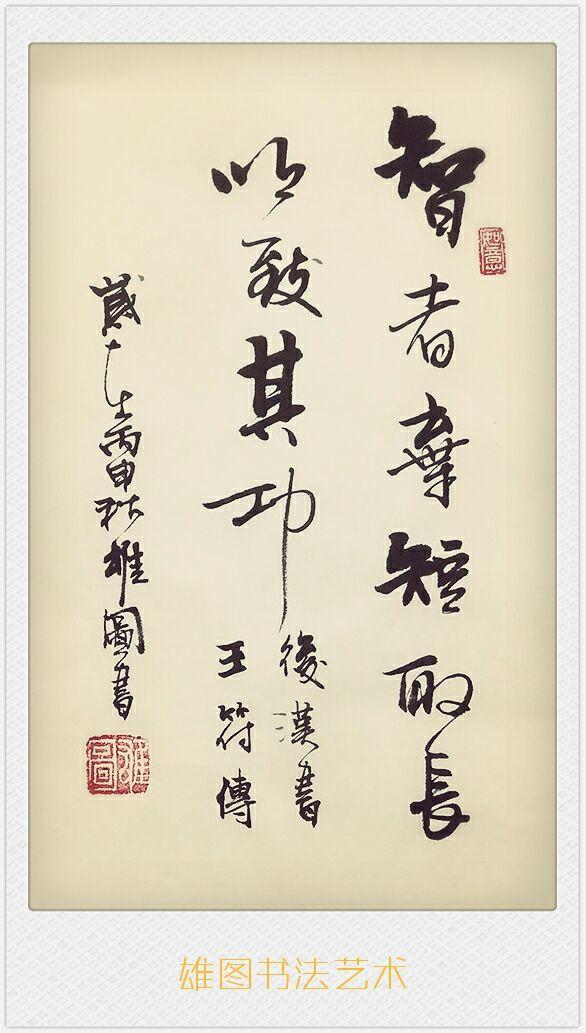 智者棄短取長
如意
以致其功
後漢書
王符傳
歲在丙申秋雄圖書
雄圖
雄图书法艺术